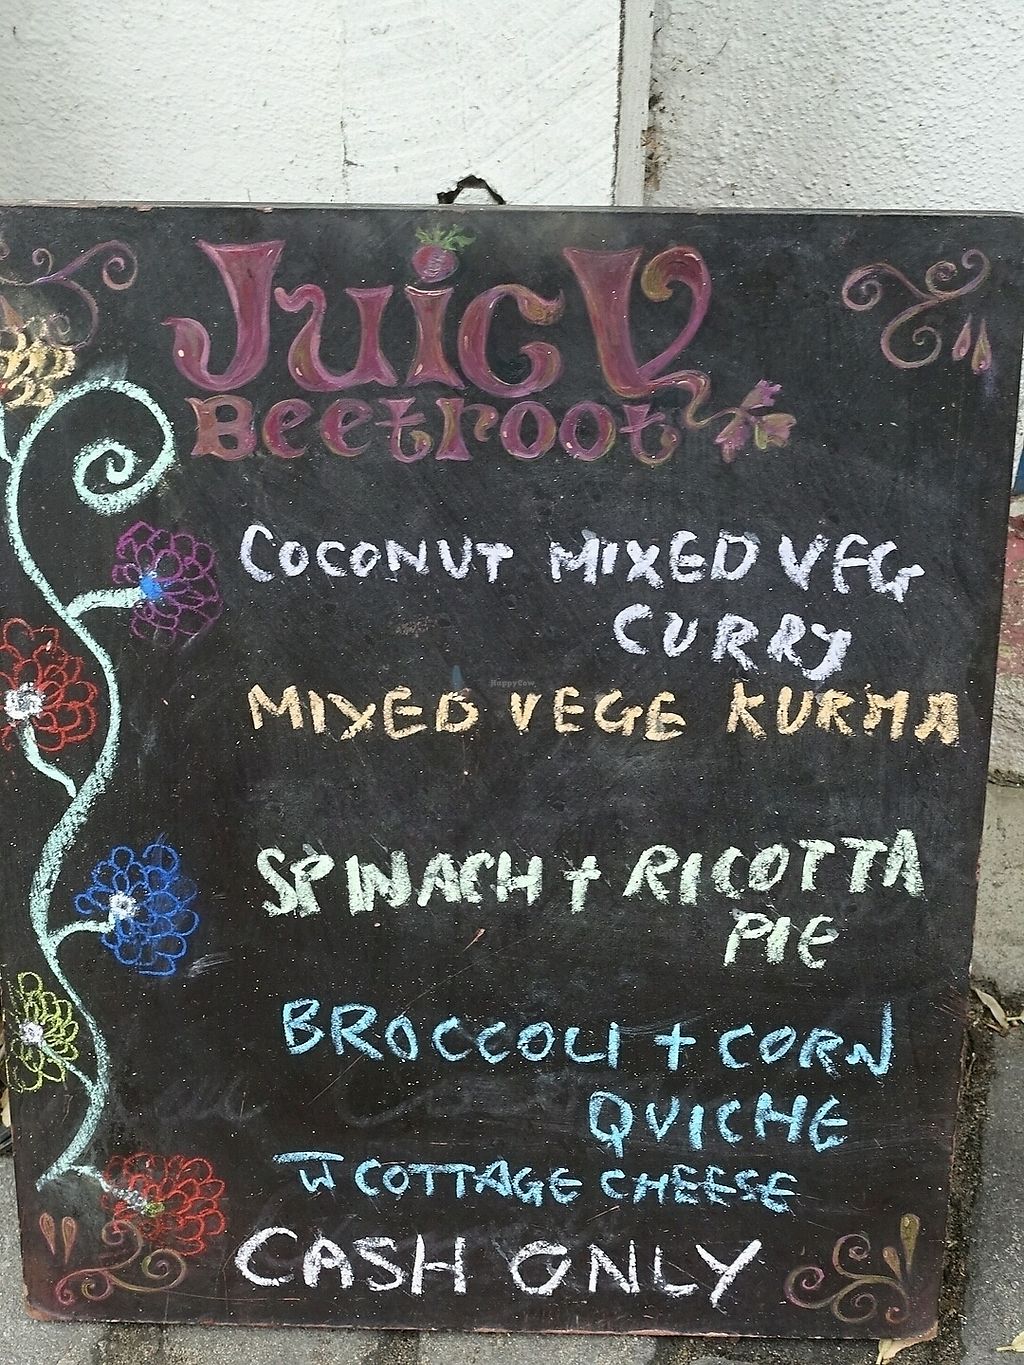 Juicy
Beetroot
COCONUT MIXED VEG
CURRY
HappyCow
MIXED VEGE KURMA
SPINACH + RICOTTA
PIE
BROCCOLI + CORN
QUICHE
W COTTAGE CHEESE
CASH ONLY